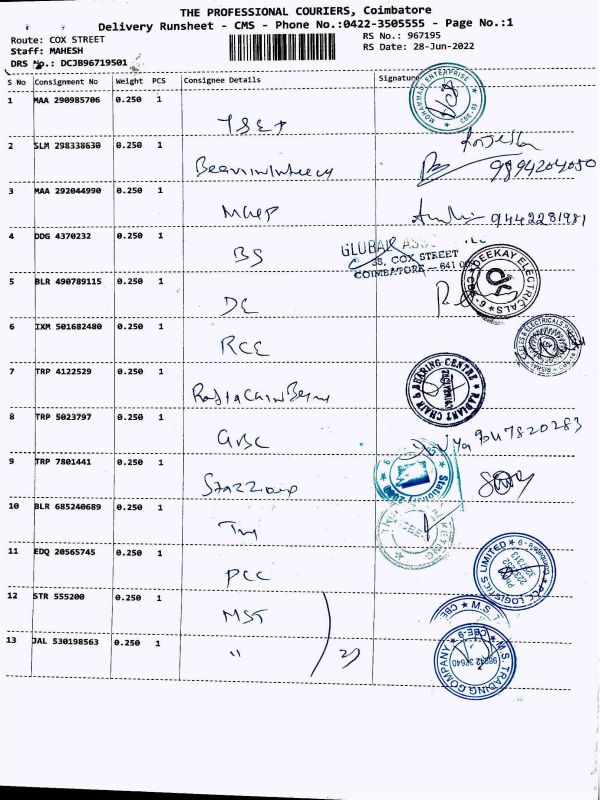 THE PROFESSIONAL COURIERS, Coimbatore
Delivery Runsheet - CMS - Phone No.:0422-3505555 - Page No.:1
Route: COX STREET
RS No.: 967195
Staff: MAHESH
RS Date: 28-Jun-2022
DRS No.: DCJB96719501
S No Consignment No Weight PCS Consignee Details Signature
1 MAA 290985706 0.250 1
MOHAMMADI ENTERPRISE CBE-09
2 SLM 298338630 0.250 1
9894204050
3 MAA 292044990 0.250 1
9442281981
4 DDG 4370232 0.250 1 BS
GLOBAL
35, COX STREET
COIMBATORE - 641 00
5 BLR 490789115 0.250 1 DE
DEEKAY ELECTRICALS CBE-9
6 IXM 501682480 0.250 1 RCE
7 TRP 4122529 0.250 1
RADIANT CHAIR & BEARING CENTRE
8 TRP 5023797 0.250 1 GBC
9047820283
9 TRP 7801441 0.250 1
10 BLR 685240689 0.250 1
11 EDQ 20565745 0.250 1 PCC
PCC LOGISTICS LIMITED
12 STR 555200 0.250 1 MST
M.S. CBE
13 JAL 530198563 0.250 1 "
M.S. TRADING COMPANY CBE-9